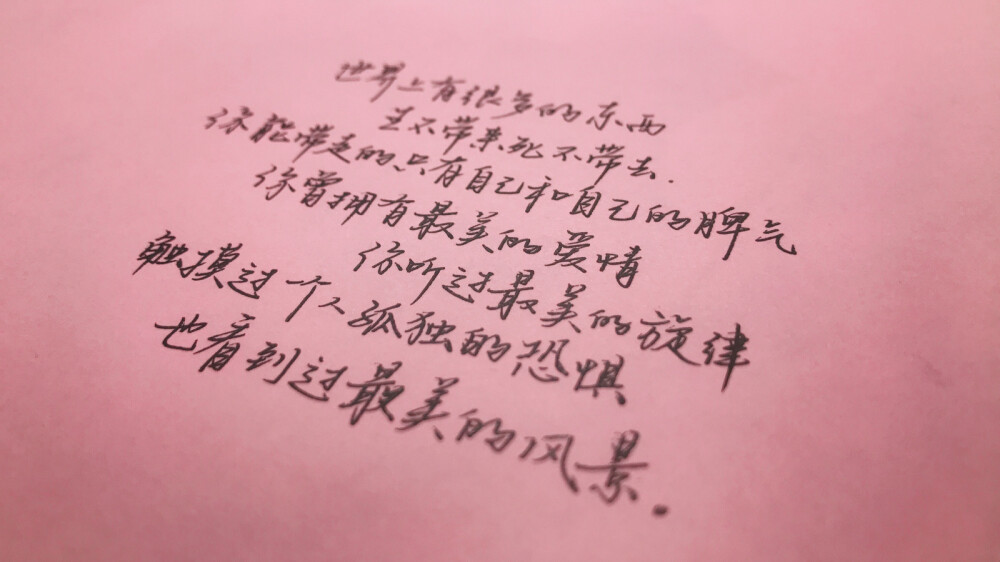 世界上有很多的东西
生不带来死不带去.
你能带走的只有自己和自己的脾气
你曾拥有最美的爱情
你听过最美的旋律
触摸过一个人孤独的恐惧
也看到过最美的风景。